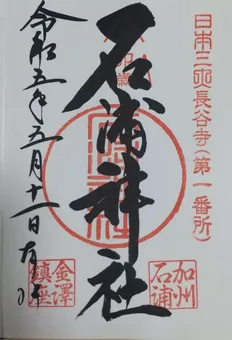 日本三 長谷寺(第一番所)
加州
石浦
石浦神社
金澤
鎮座
令和五年五月十一日